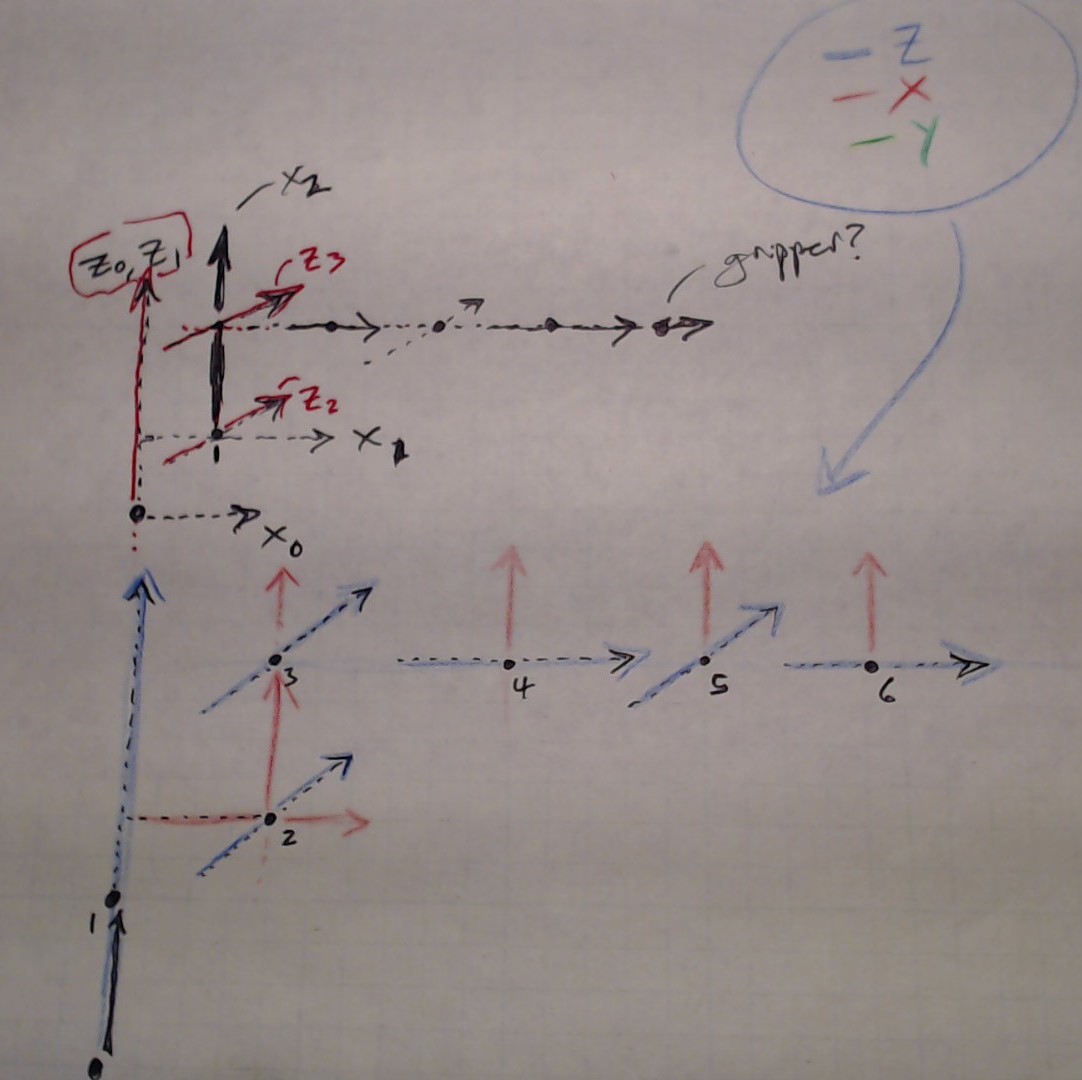 — Z
— X
— Y
x₂
z₀, z₁
z₃
gripper?
z₂
x₁
x₀
3
4
5
6
2
1